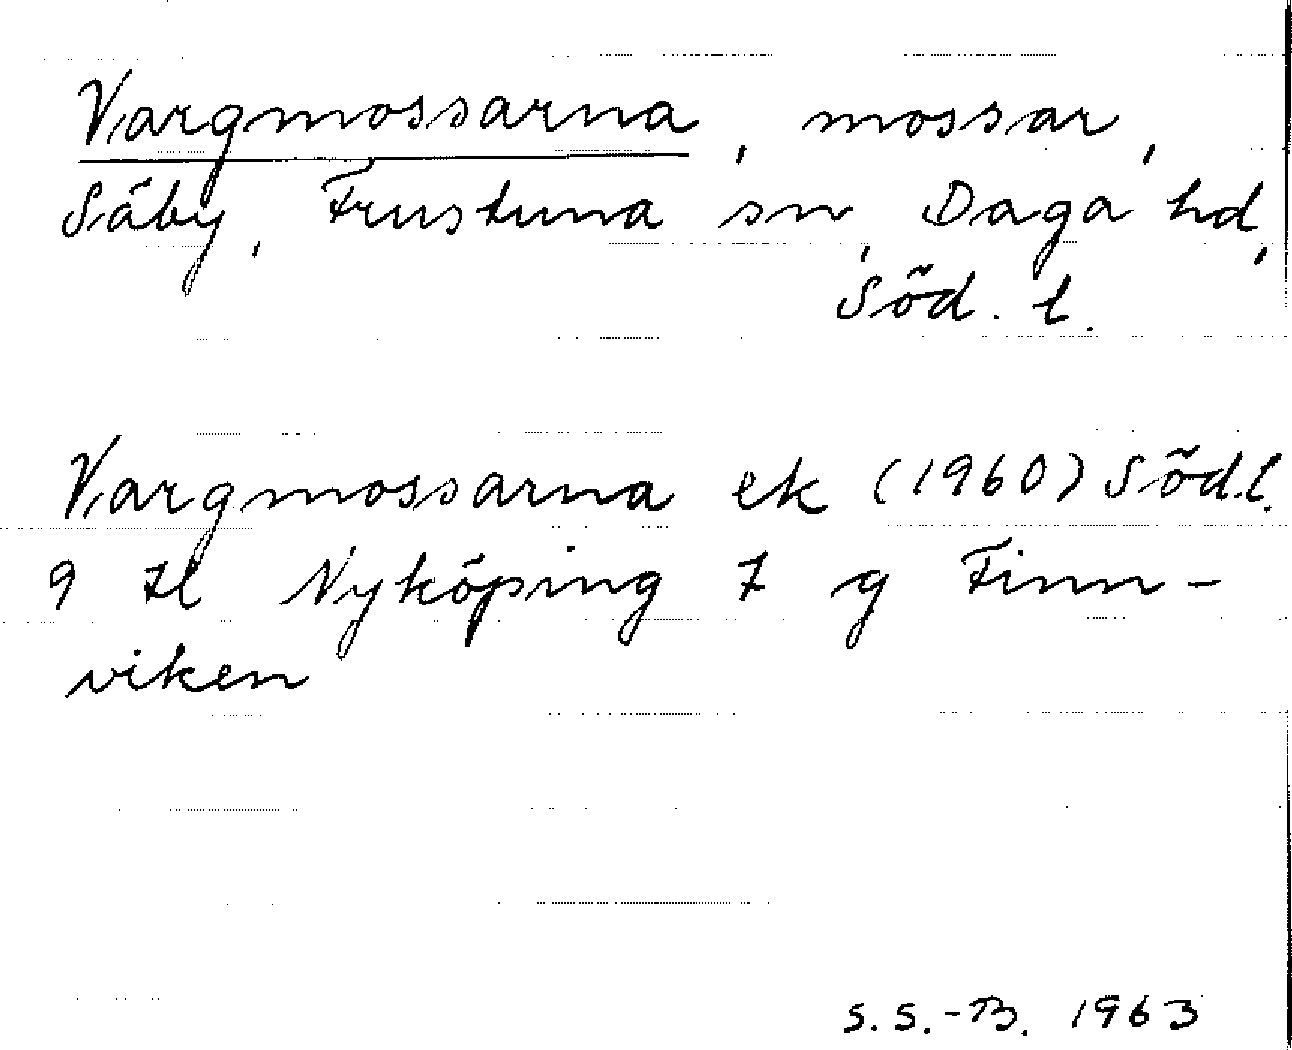 Vargmossarna, mossar,
Säby, Frustuna sn, Daga hd,
Söd. l.
Vargmossarna ek (1960) Söd.l.
9 H Nyköping 7 g Finn-
viken
S.S.-B. 1963